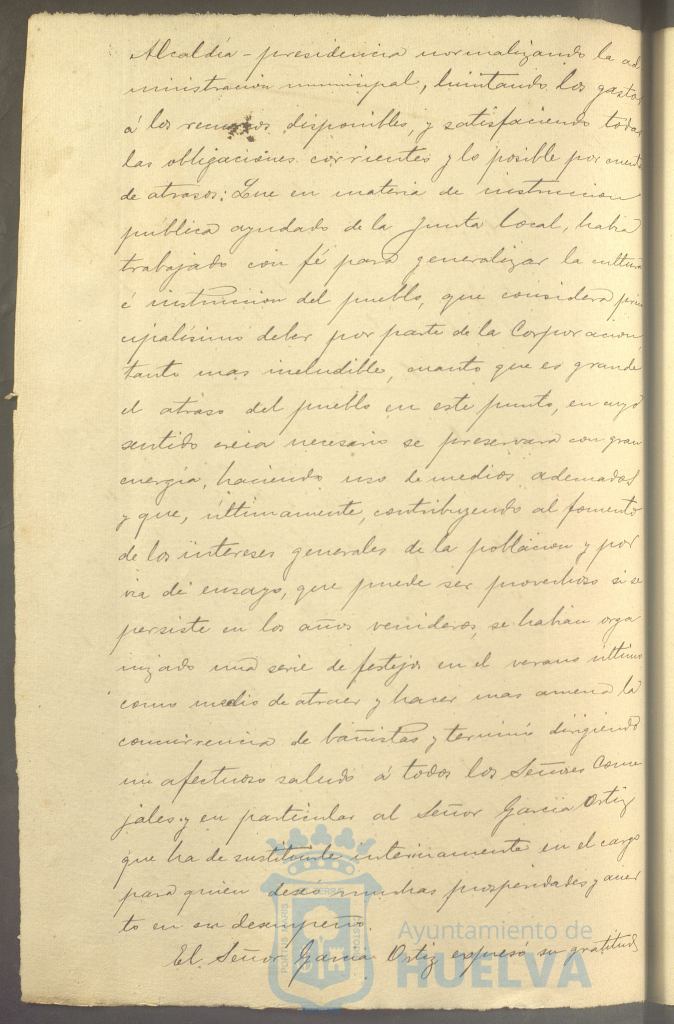 Alcaldía-presidencia normalizando la ad
ministracion municipal, limitando los gastos
á los recursos disponibles, y satisfaciendo todas
las obligaciones corrientes y lo posible por cuenta
de atrasos: Que en materia de instruccion
pública ayudado de la Junta local, habia
trabajado con fé para generalizar la cultura
é instruccion del pueblo, que considera prin
cipalísimo deber por parte de la Corporacion,
tanto mas ineludible, cuanto que es grande
el atraso del pueblo en este punto, en cuyo
sentido creia necesario se preservara con gran
energía, haciendo uso de medios adecuados
y que, últimamente, contribuyendo al fomento
de los intereses generales de la poblacion y por
via de ensayo, que puede ser provechoso si se
persiste en los años venideros, se habian orga
nizado una serie de festejos en el verano último
como medio de atraer y hacer mas amena la
concurrencia de bañistas y terminó dirigiendo
un afectuoso saludo á todos los Señores Conce
jales y en particular al Señor Garcia Ortiz
que ha de sustituirle interinamente en el cargo
para quien deseó muchas prosperidades y acier
to en su desempeño.
El Señor Garcia Ortiz expresó su gratitud
Ayuntamiento de
HUELVA